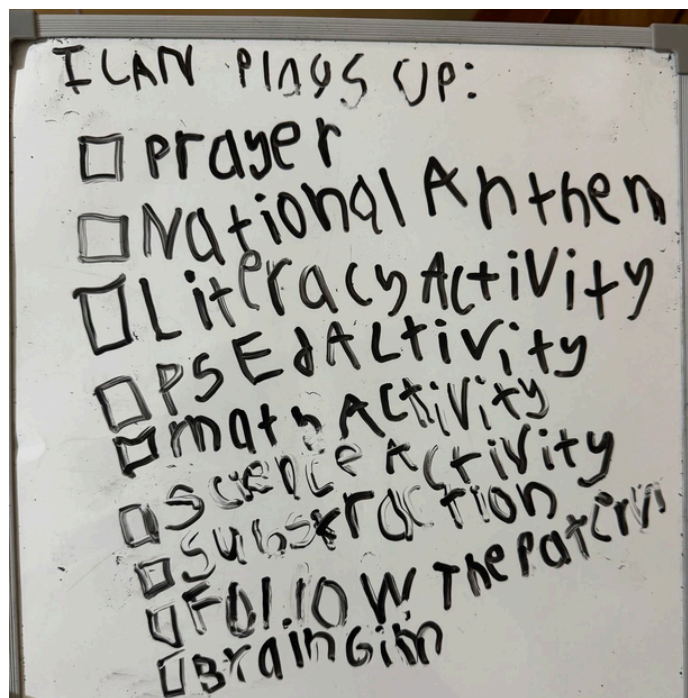 ILAN PlAYS UP:
☐ Prayer
☐ National Anthem
☐ Literacy Activity
☐ PSEd Activity
☐ math Activity
☐ Science Activity
☐ Substraction
☐ Follow The Patern
☐ Brain Gim